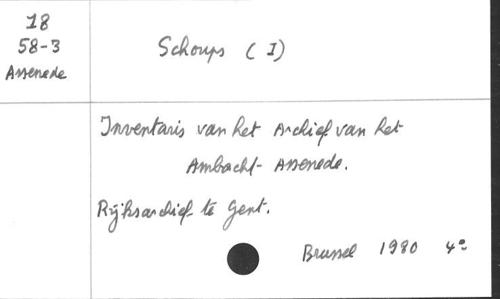 18
58-3
Assenede
Schoups (I)
Inventaris van het Archief van het
Ambacht Assenede.
Rijksarchief te Gent.
Brussel 1980 4°